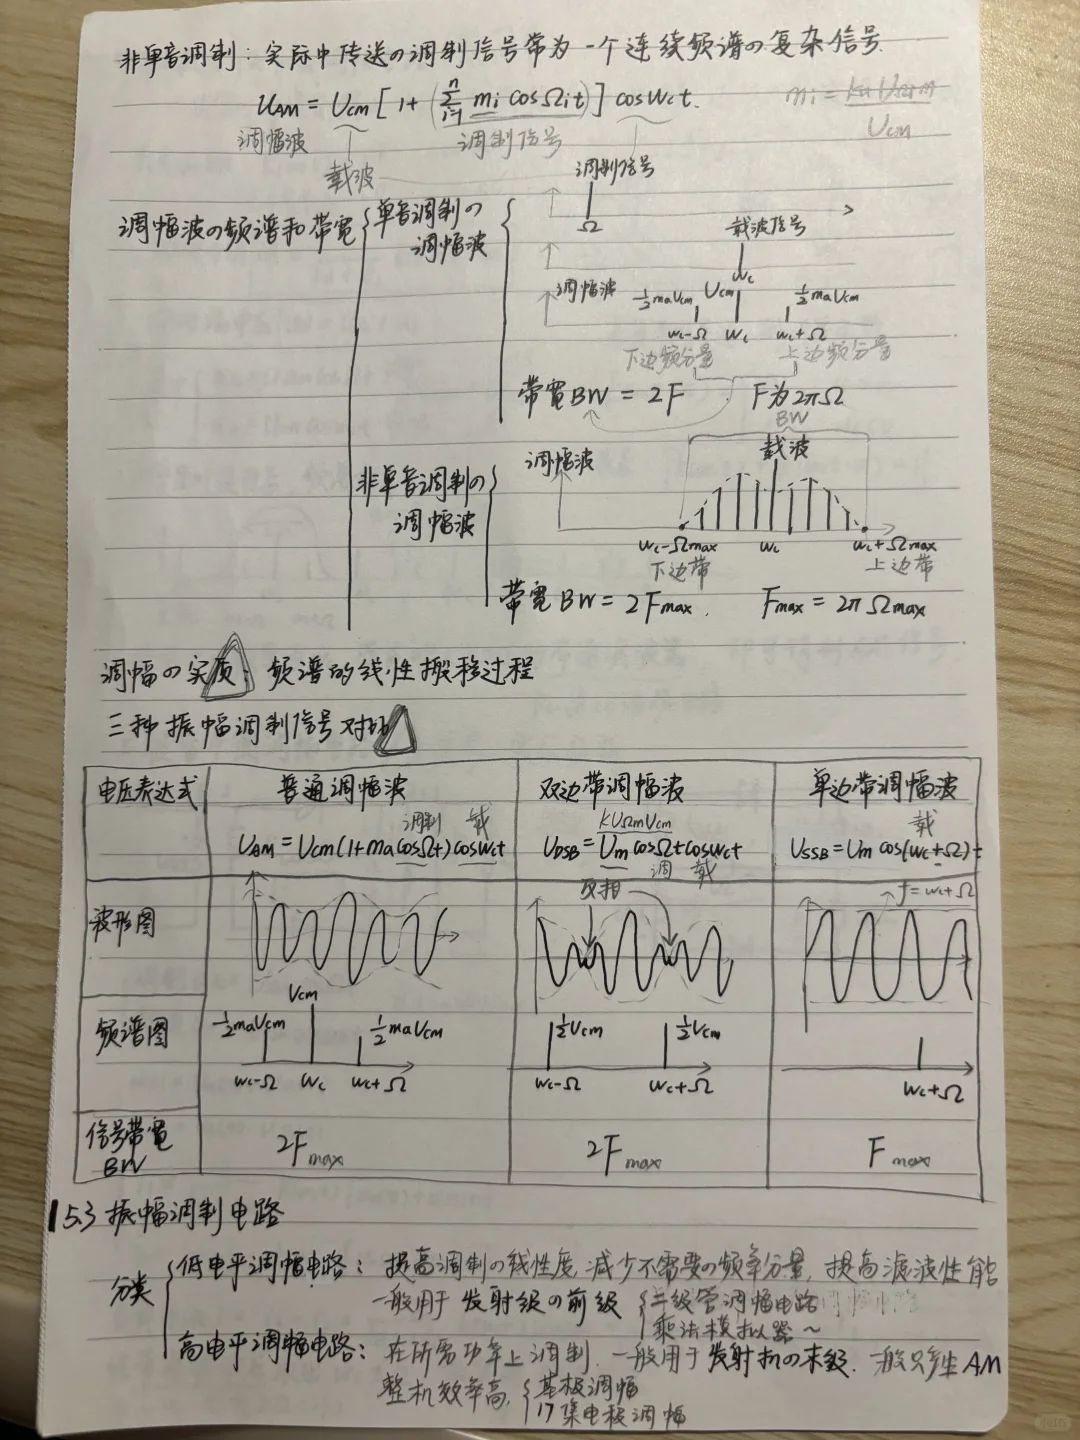 非单音调制：实际中传送の调制信号常为一个连续频谱の复杂信号.
UAM = Ucm [1+(∑ⁿᵢ₌₁ mi cosΩit)] coswct.
mi = kaUΩim / Ucm
调幅波 调制信号
载波
调幅波の频谱和带宽
单音调制の调幅波
调制信号
Ω
载波信号
wc
调幅波 ½maUcm Ucm ½maUcm
wc-Ω wc wc+Ω
下边频分量 上边频分量
带宽BW = 2F F为2πΩ
非单音调制の调幅波
BW
调幅波 载波
wc-Ωmax wc wc+Ωmax
下边带 上边带
带宽BW = 2Fmax. Fmax = 2πΩmax
调幅の实质：频谱的线性搬移过程
三种振幅调制信号对比
电压表达式 普通调幅波 双边带调幅波 单边带调幅波
调制 载 KUΩmUcm 载
UAM = Ucm(1+macosΩt)coswct UDSB = Um cosΩt coswct USSB = Um cos(wc+Ω)t
调 载
波形图 反相 f=wc+Ω
频谱图 ½maUcm Ucm ½maUcm ½Ucm ½Ucm
wc-Ω wc wc+Ω wc-Ω wc+Ω wc+Ω
信号带宽BW 2Fmax 2Fmax Fmax
5.3 振幅调制电路
分类
低电平调幅电路：提高调制の线性度,减少不需要の频率分量,提高滤波性能
一般用于发射级の前级 二级管调幅电路
乘法模拟路～
高电平调幅电路：在所需功率上调制.一般用于发射机の末级.一般只产生AM
整机效率高, 基极调幅
集电极调幅